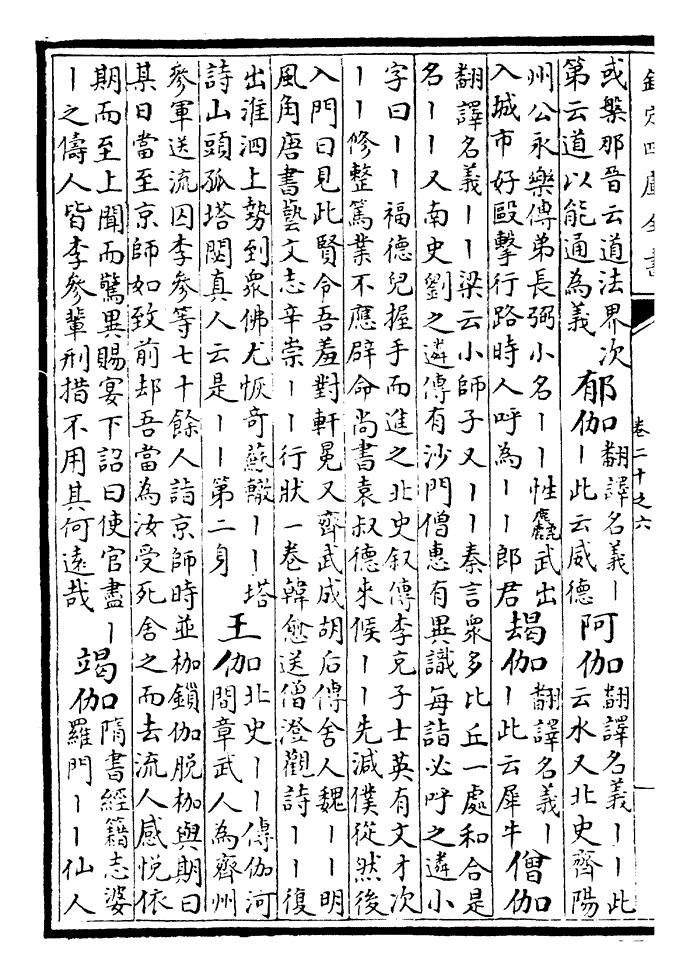 欽定四庫全書
卷二十之六
或槃那晉云道法界次
第云道以能通為義
郁伽
翻譯名義丨
丨此云威德
阿伽
翻譯名義丨丨此
云水又北史齊陽
州公永樂傳弟長弼小名丨丨性麤武出
入城市好毆擊行路時人呼為丨丨郎君
朅伽
翻譯名義丨
丨此云犀牛
僧伽
翻譯名義丨丨梁云小師子又丨丨秦言衆多比丘一處和合是
名丨丨又南史劉之遴傳有沙門僧惠有異識每詣必呼之遴小
字曰丨丨福德兒握手而進之北史叙傳李克子士英有文才次
丨丨修整篤業不應辟命尚書袁叔德來候丨丨先減僕從然後
入門曰見此賢令吾羞對軒冕又齊武成胡后傳舍人魏丨丨明
風角唐書藝文志辛崇丨丨行狀一卷韓愈送僧澄觀詩丨丨復
出淮泗上勢到衆佛尤恢奇蘇轍丨丨塔
詩山頭孤塔閟真人云是丨丨第二身
王伽
北史丨丨傳伽河
間章武人為齊州
參軍送流囚李參等七十餘人詣京師時並枷鎖伽脫枷與期曰
某日當至京師如致前却吾當為汝受死舍之而去流人感悅依
期而至上聞而驚異賜宴下詔曰使官盡丨
丨之儔人皆李參輩刑措不用其何遠哉
竭伽
隋書經籍志婆
羅門丨丨仙人